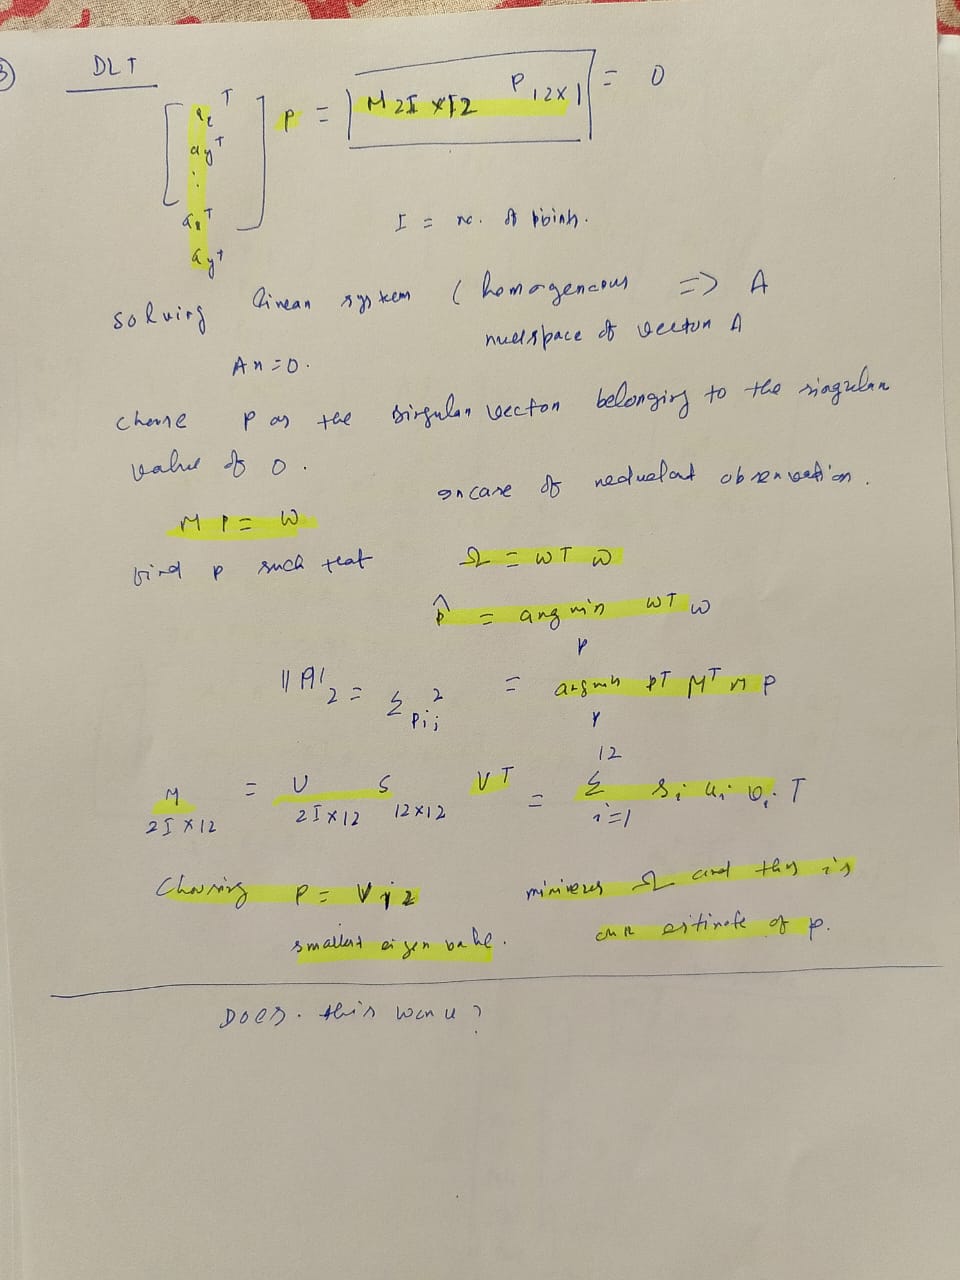 3
DLT
[ a_x^T a_y^T : a_x^T a_y^T ] p = M 2I x 12 P 12 x 1 = 0
I = no. of points.
solving linear system ( homogeneous => A
nullspace of vector A
Ax = 0.
choose p as the singular vector belonging to the singular
value of 0.
in case of observation.
M P = W
find p such that Ω = w^T w
p̂ = arg min_p w^T w
|| P ||_2 = Σ p_ij^2 = argmin_p p^T M^T M p
M 2I x 12 = U 2I x 12 S 12 x 12 V^T = Σ_{i=1}^{12} s_i u_i v_i^T
Choosing p = v_12 Ω and this is
smallest eigen our estimate of p.
Does. this